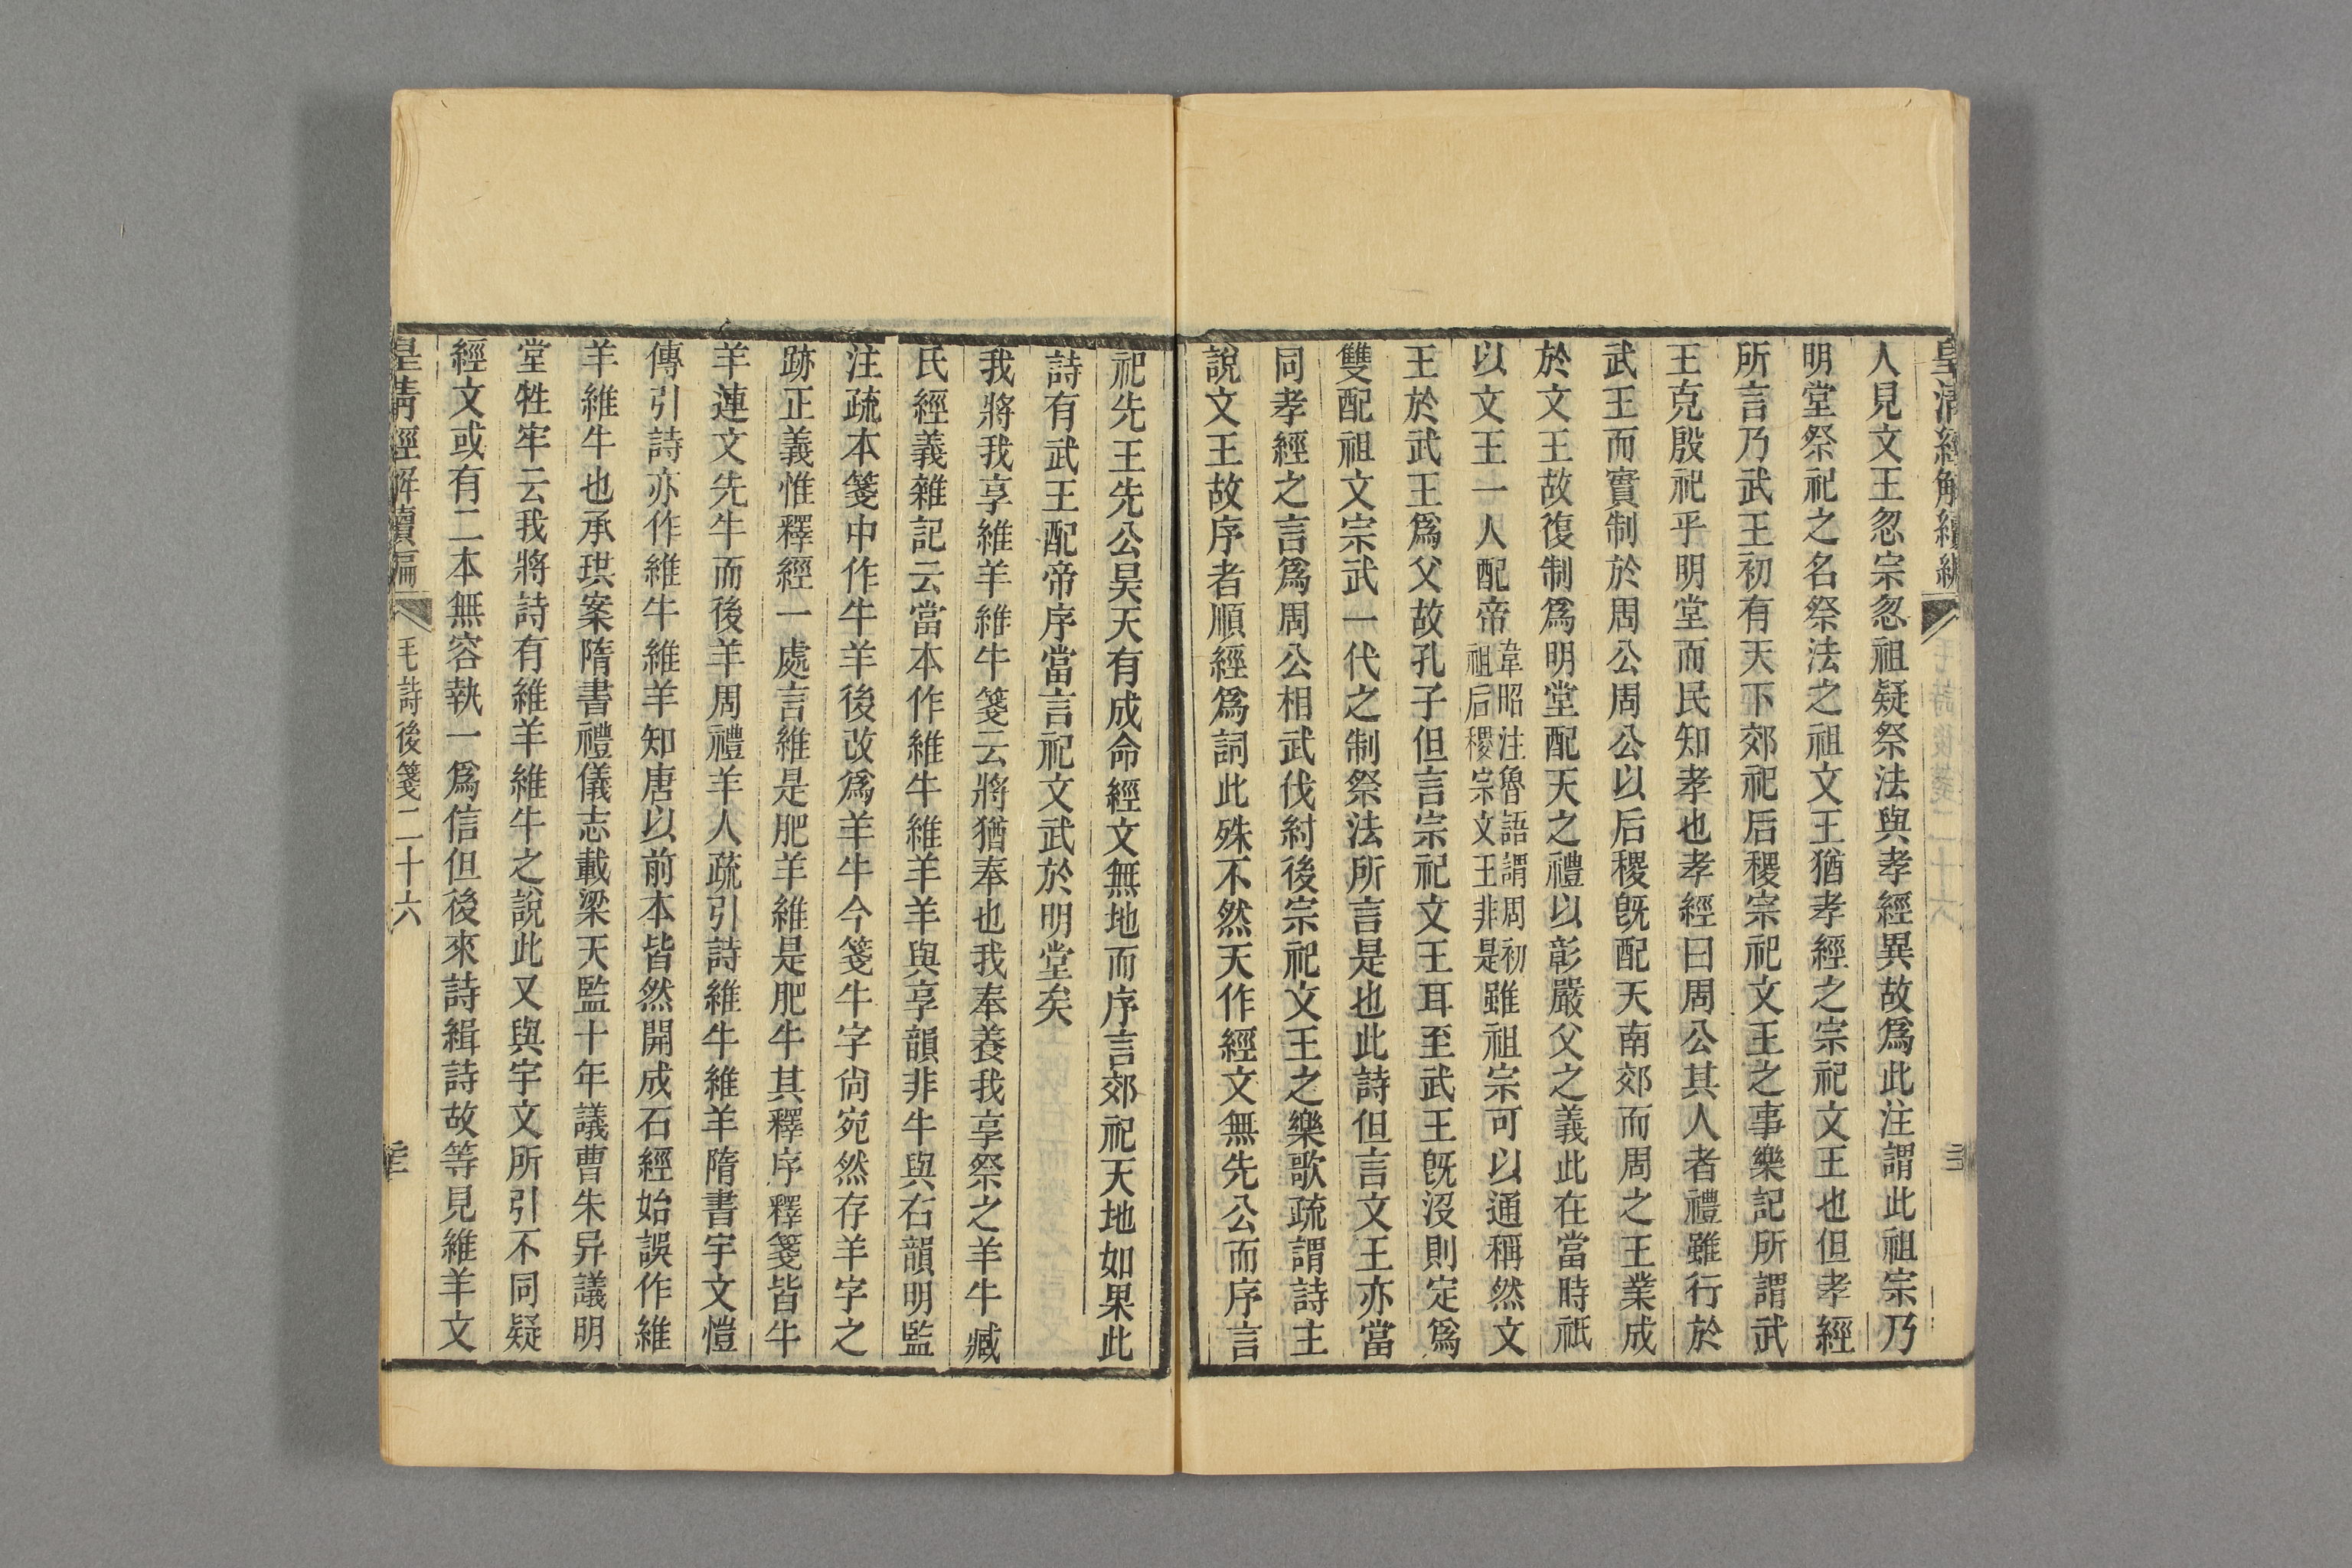 皇清經解續編
人見文王忽宗忽祖疑祭法與孝經異故爲此注謂此祖宗乃
明堂祭祀之名祭法之祖文王猶孝經之宗祀文王也但孝經
所言乃武王初有天下郊祀后稷宗祀文王之事樂記所謂武
王克殷祀乎明堂而民知孝也孝經曰周公其人者禮雖行於
武王而實制於周公周公以后稷旣配天南郊而周之王業成
於文王故復制爲明堂配天之禮以彰嚴父之義此在當時祇
以文王一人配帝韋昭注魯語謂周初祖后稷宗文王非是雖祖宗可以通稱然文
王於武王爲父故孔子但言宗祀文王耳至武王旣沒則定爲
雙配祖文宗武一代之制祭法所言是也此詩但言文王亦當
同孝經之言爲周公相武伐紂後宗祀文王之樂歌疏謂詩主
說文王故序者順經爲詞此殊不然天作經文無先公而序言
祀先王先公昊天有成命經文無地而序言郊祀天地如果此
詩有武王配帝序當言祀文武於明堂矣
我將我享維羊維牛箋云將猶奉也我奉養我享祭之羊牛臧
氏經義雜記云當本作維牛維羊羊與享韻非牛與右韻明監
注疏本箋中作牛羊後改爲羊牛今箋牛字尙宛然存羊字之
跡正義惟釋經一處言維是肥羊維是肥牛其釋序釋箋皆牛
羊連文先牛而後羊周禮羊人疏引詩維牛維羊隋書宇文愷
傳引詩亦作維牛維羊知唐以前本皆然開成石經始誤作維
羊維牛也承珙案隋書禮儀志載梁天監十年議曹朱异議明
堂牲牢云我將詩有維羊維牛之說此又與宇文所引不同疑
經文或有二本無容執一爲信但後來詩緝詩故等見維羊文
皇清經解續編
毛詩後箋二十六